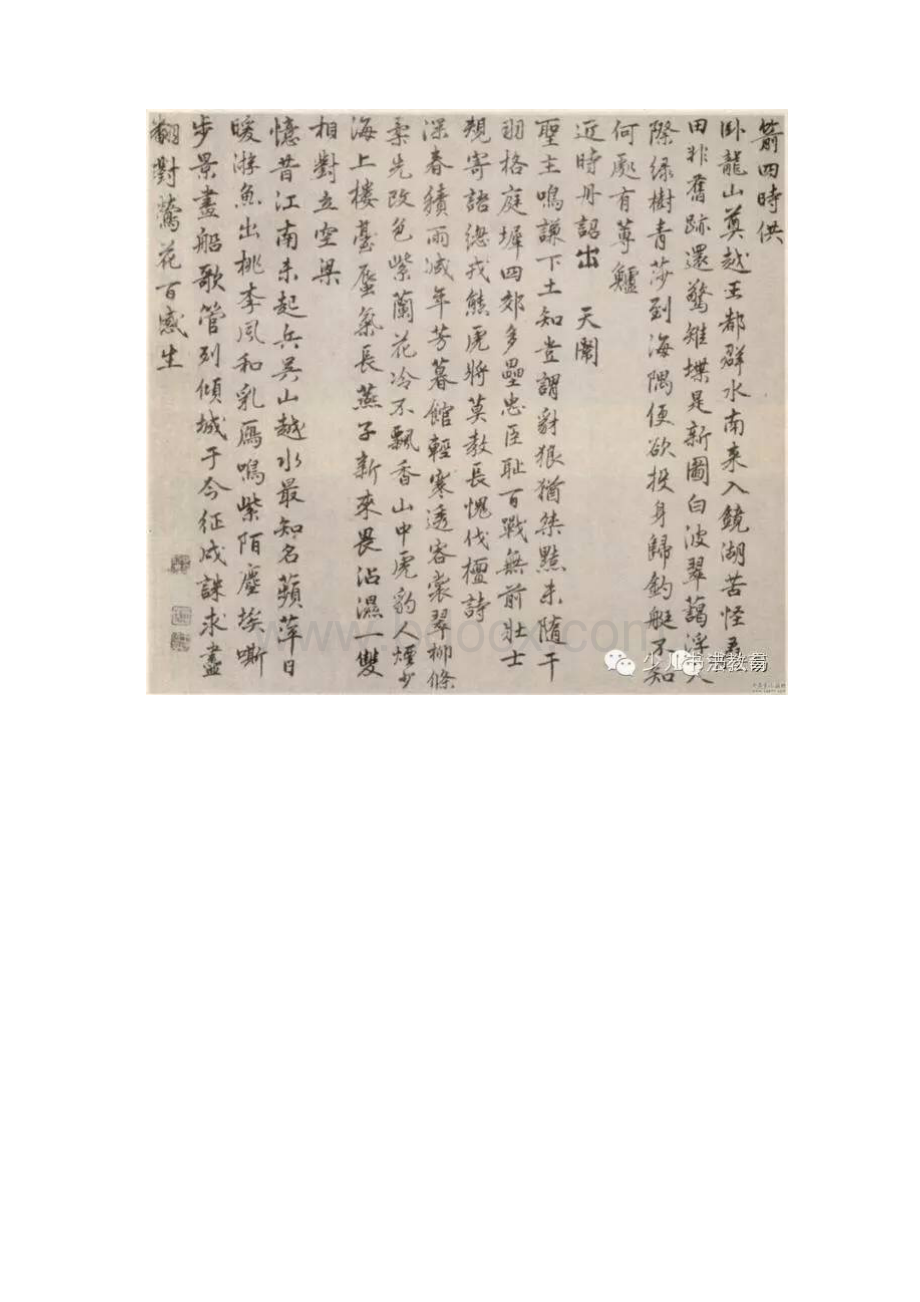 箭四時供
臥龍山奠越王都群水南来入鏡湖苦怪君
田非舊跡還驚雉堞是新圖白波翠藹浮天
際緑樹青莎到海隅便欲投身歸釣艇不知
何處有蓴鱸
近時丹詔出 天閽
聖主鳴謙下土知豈謂豺狼猶桀黠未隨干
羽格庭墀四郊多壘忠臣耻百戰無前壯士
規寄語總戎熊虎將莫教長愧伐檀詩
深春積雨減年芳暮館輕寒透客裳翠柳條
柔先改色紫蘭花冷不飄香山中虎豹人煙少
海上樓臺蜃氣長燕子新來畏沾濕一雙
相對立空梁
憶昔江南未起兵吳山越水最知名蘋萍日
暖游魚出桃李風和乳鴈鳴紫陌塵埃嘶
步景畫船歌管列傾城于今征戍誅求盡
翻對鶯花百感生
www.bdocx.com
少儿书法教育